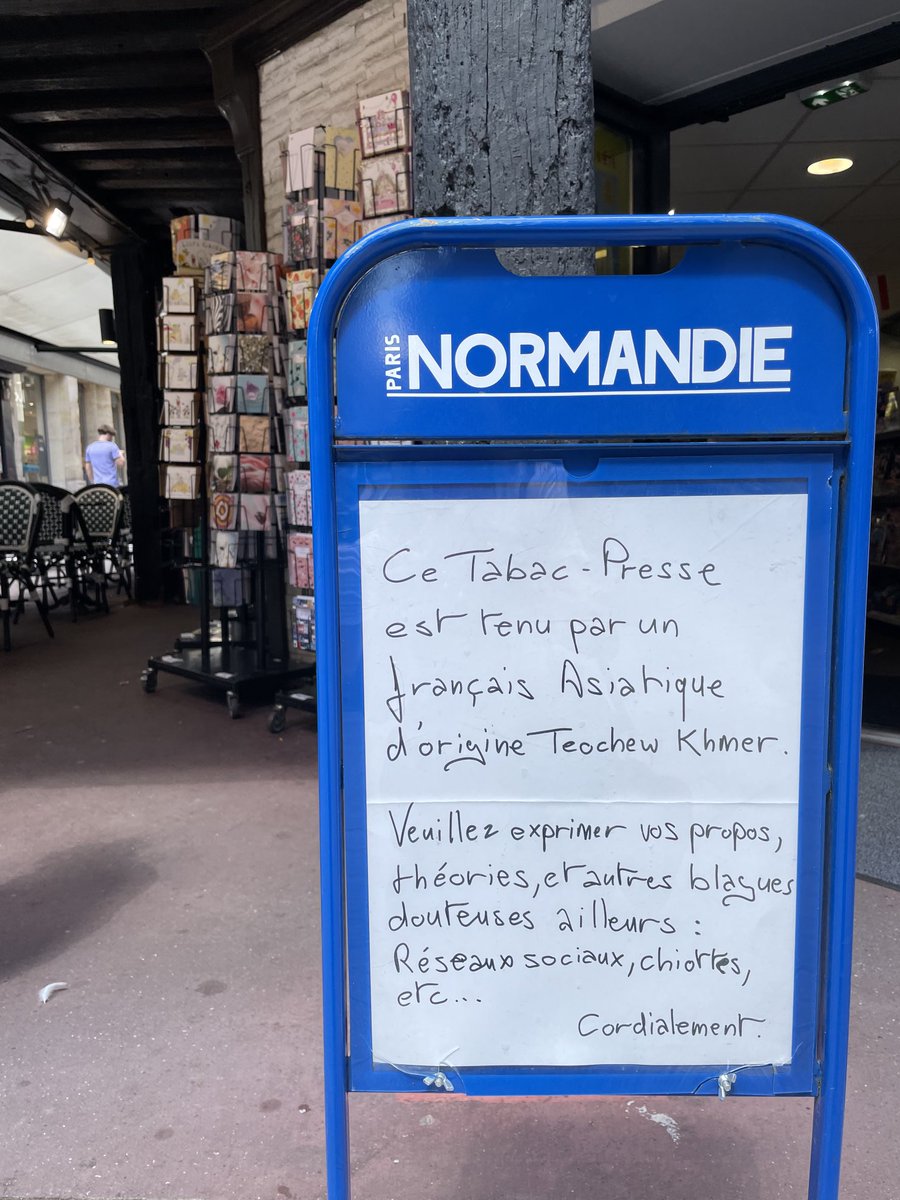 PARIS
NORMANDIE
Ce Tabac-Presse
est tenu par un
français Asiatique
d'origine Teochew Khmer.
Veuillez exprimer vos propos,
théories, et autres blagues
douteuses ailleurs :
Réseaux sociaux, chiottes,
etc...
Cordialement.